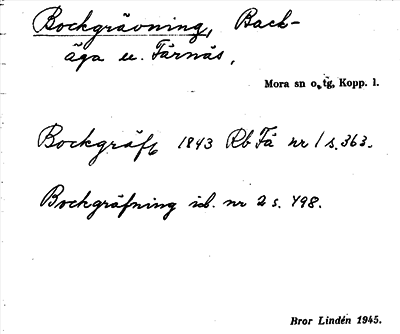 Bockgrävning, Back-
äga u. Färnäs,
Mora sn o. tg, Kopp. l.
Bockgräft 1843 Rb Fä nr 1 s. 363.
Bockgräfning ib. nr 2 s. 498.
Bror Lindén 1945.